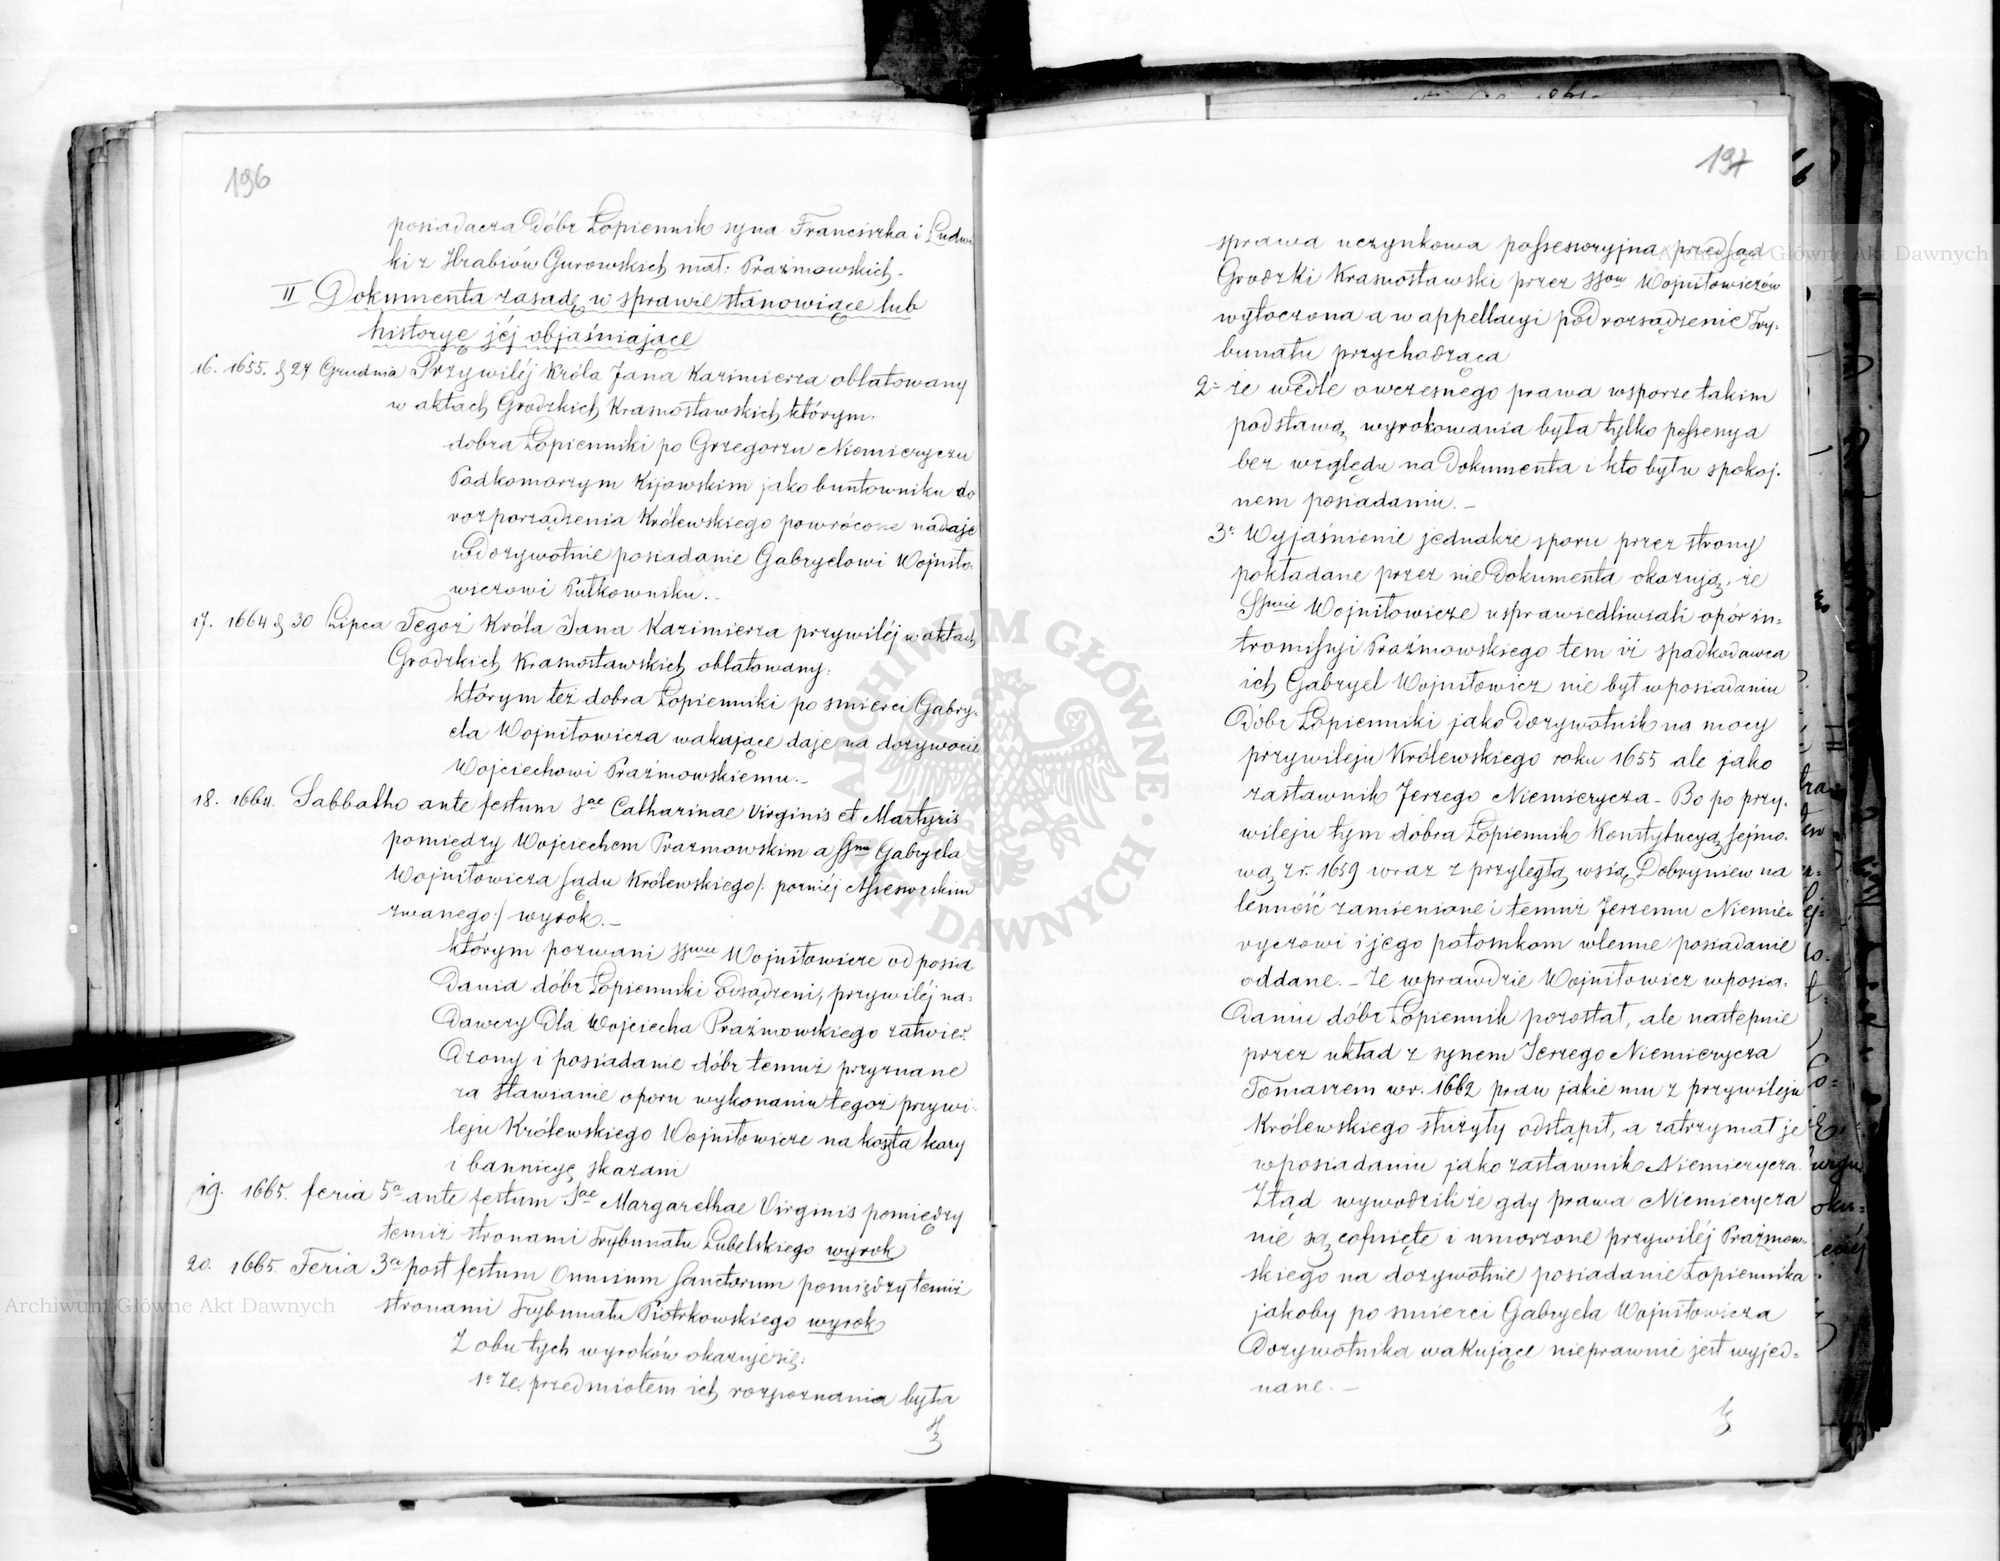 196
posiadacza Dóbr Łopiennik syna Franciszka i Ludwi
ki z Hrabiów Gurowskich mał: Prażmowskich -
II Dokumenta zasadę w sprawie stanowiące lub
historyę jéj objaśniające
16. 1655. d 27 Grudnia Przywiléj Króla Jana Kazimierza oblatowany
w aktach Grodzkich Krasnostawskich którym.
dobra Łopienniki po Grzegorzu Niemieryczu
Podkomorzym Kijowskim jako buntowniku do
rozporządzenia Królewskiego powrócone nadaje
w dozywotnie posiadanie Gabryelowi Wojniło-
wiczowi Pułkowniku. -
17. 1664 d 30 Lipca Tegoż Króla Jana Kazimierza przywiléj w aktach
Grodzkich Krasnostawskich oblatowany.
którym też dobra Łopienniki po smierci Gabry-
ela Wojniłowicza wakujące daje na dozywocie
Wojciechowi Prażmowskiemu. -
18. 1664. Sabbatho ante festum Sae Catharinae Virginis et Martyris
pomiędzy Wojciechem Prazmowskim a SSmi Gabryela
Wojniłowicza Sądu Królewskiego /: pozniéj Assesorskim
zwanego :/ wyrok. -
którym pozwani SSwie Wojniłowicze od posia
dania dóbr Łopienniki odsądzeni, przywiléj na-
dawczy dla Wojciecha Prażmowskiego zatwier.
dzony i posiadanie dóbr temuż przyznane
za stawianie oporu wykonaniu tegoż przywi-
leju Królewskiego Wojniłowicze na koszta kary
i bannicyę skazani
19. 1665. feria 5a ante festum Sae Margarethae Virginis pomiędzy
temiż stronami Trybunału Lubelskiego wyrok
20. 1665. Feria 3a post festum Omnium Sanctorum pomiędzy temiż
stronami Trybunału Piotrkowskiego wyrok
Z obu tych wyroków okazuje się:
1o że przedmiotem ich rozpoznania była
197
sprawa uczynkowa possessoryjna przed Sąd
Grodzki Krasnostawski przez SSow Wojniłowiczów
wytoczona a w appellacyi pod rozsądzenie Try-
bunału przychodząca
2o że wedle owczesnego prawa w sporze takim
podstawą wyrokowania była tylko possesya
bez względu na Dokumenta i kto był w spokoj-
nem posiadaniu. -
3o Wyjaśnienie jednakże sporu przez strony
pokładane przez nie Dokumenta okazują, że
SSwie Wojniłowicze usprawiedliwiali opór in-
tromissyi Prażmowskiego tem iż spadkodawca
ich Gabryel Wojniłowicz nie był w posiadaniu
Dóbr Łopienniki jako Dozywotnik na mocy
przywileju Królewskiego roku 1655 ale jako
zastawnik Jerzego Niemierycza - Bo po przy-
wileju tym dobra Łopiennik Konstytucyą sejmo-
wą z r. 1659 wraz z przyległą wsią Dobryniew na
lenność zamienione i temuż Jerzemu Niemie
ryczowi i jego potomkom w lenne posiadanie
oddane. - Że wprawdzie Wojniłowicz w posia-
daniu dóbr Łopiennik pozostał, ale następnie
przez układ z synem Jerzego Niemierycza
Tomaszem w r. 1662 praw jakie mu z przywileju
Królewskiego służyły odstąpił, a zatrzymał je
w posiadaniu jako zastawnik Niemierycza.
Ztąd wywodzili że gdy prawa Niemierycza
nie są cofnięte i umorzone przywiléj Prażmow-
skiego na dozywotnie posiadanie Łopiennika
jakoby po smierci Gabryela Wojniłowicza
Dozywotnika wakujące nieprawnie jest wyjed-
nane. -
ARCHIWUM GŁÓWNE AKT DAWNYCH
Archiwum Główne Akt Dawnych
Archiwum Główne Akt Dawnych